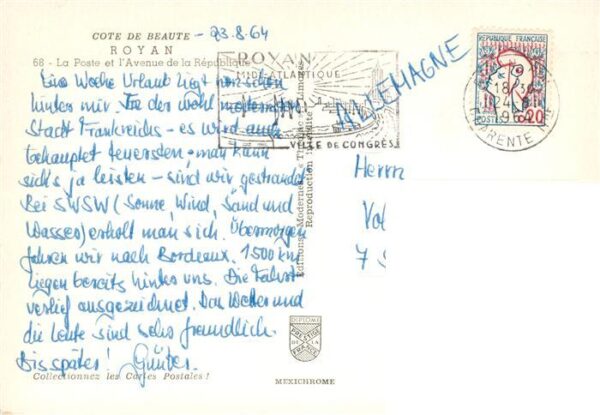 COTE DE BEAUTE - 23.8.64
ROYAN
68 - La Poste et l'Avenue de la République
Eine Woche Urlaub liegt nun schon
hinter mir. In der wohl modernsten
Stadt Frankreichs - es wird auch
behauptet teuersten - man kann
sich's ja leisten - sind wir gestrandet
Bei SWSW (Sonne, Wind, Sand und
Wasser) erholt man sich. Übermorgen
fahren wir nach Bordeaux. 1500 km
liegen bereits hinter uns. Die Fahrt
verlief ausgezeichnet. Das Wetter und
die Leute sind sehr freundlich.
Bis später! Günter.
Collectionnez les Cartes Postales !
Editions Modernes
Reproduction interdite
DIPLOME
PRESTIGE
DE LA
FRANCE
MEXICHROME
ROYAN
MIDI-ATLANTIQUE
VILLE DE CONGRES
ALLEMAGNE
REPUBLIQUE FRANÇAISE
POSTES
0,20
18 H 30
24-8
1964
CHARENTE
Herrn
Vol
7 S